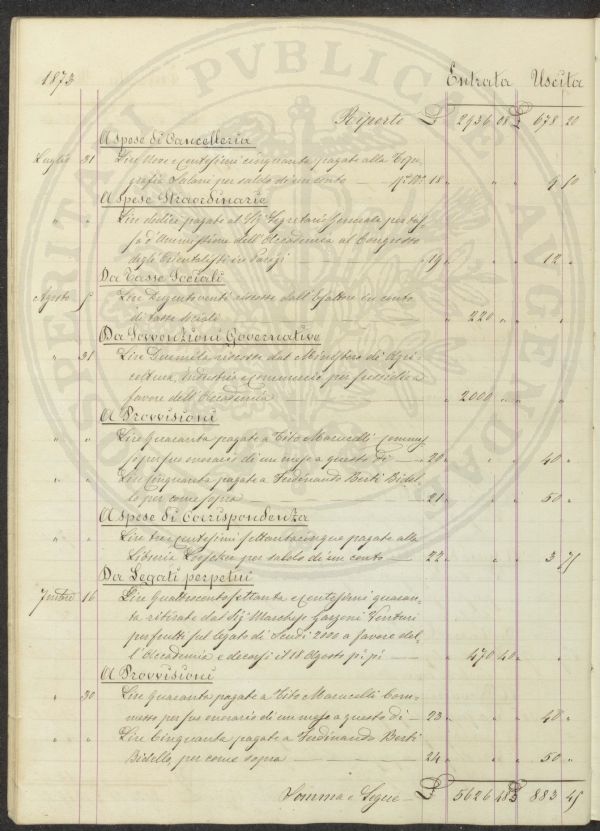 1873 Entrata Uscita
Riporto £ 2936 08 £ 678 20
A Spese di Cancelleria
Luglio 31 Lire Nove e centesimi cinquanta pagate alla Tipo-
grafia Salani per saldo di un conto — 18 " " 9 50
A Spese Straordinarie
" " Lire dodici pagate al Sig. Segretario Generale per tas-
sa d'ammissione dell'Accademia al Congresso
degli Orientalisti in Parigi — 19 " " 12 "
Da Tasse Sociali
Agosto 5 Lire Dugentoventi riscosse dall'Esattore in conto
di tasse sociali 220 " " "
Da Sovvenzioni Governative
" 31 Lire Duemila riscosse dal Ministero di Agri-
coltura, Industria e Commercio per sussidio a
favore dell'Accademia — 2000 " " "
A Provvisioni
" " Lire Quaranta pagate a Tito Marucelli Commes-
so per suo onorario di un mese a questo dì — 20 " " 40 "
" " Lire Cinquanta pagate a Ferdinando Berti Bidel-
lo per come sopra — 21 " " 50 "
A Spese di Corrispondenza
" " Lire tre e centesimi settantacinque pagate alla
Libreria Loescher per saldo di un conto — 22 " " 3 75
Da Legati perpetui
7mbre 16 Lire Quattrocentosettanta e centesimi quaran-
ta ritirate dal Sig. Marchese Garzoni Venturi
per frutti sul legato di Scudi 2000 a favore del-
l'Accademia e decorsi il 18 Agosto p: p: — 470 40 " "
A Provvisioni
" 30 Lire Quaranta pagate a Tito Marucelli Com-
messo per suo onorario di un mese a questo dì — 23 " " 40 "
" " Lire Cinquanta pagate a Ferdinando Berti
Bidello, per come sopra — 24 " " 50 "
Somma e Segue — £ 5626 48 £ 883 45
PVBLICAE AVGENDAE PROSPERITATI